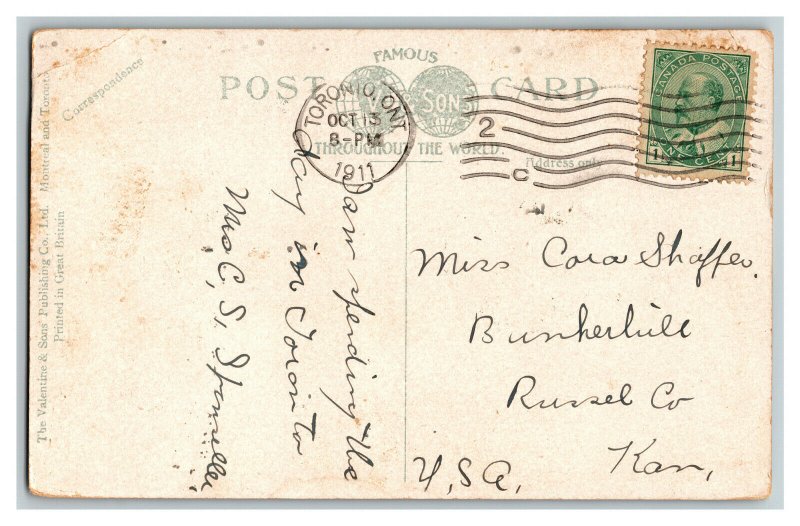 FAMOUS
POST CARD
V & SONS
THROUGHOUT THE WORLD
Correspondence
Address only
TORONTO, ONT
OCT 13
8-PM
1911
2
C
CANADA POSTAGE
1 ONE CENT 1
The Valentine & Sons Publishing Co., Ltd. Montreal and Toronto
Printed in Great Britain
I am spending the
day in Toronto
Mrs C. S.
Miss Cora Shaffer.
Bunkerhill
Russel Co
Kan,
U, S, A,